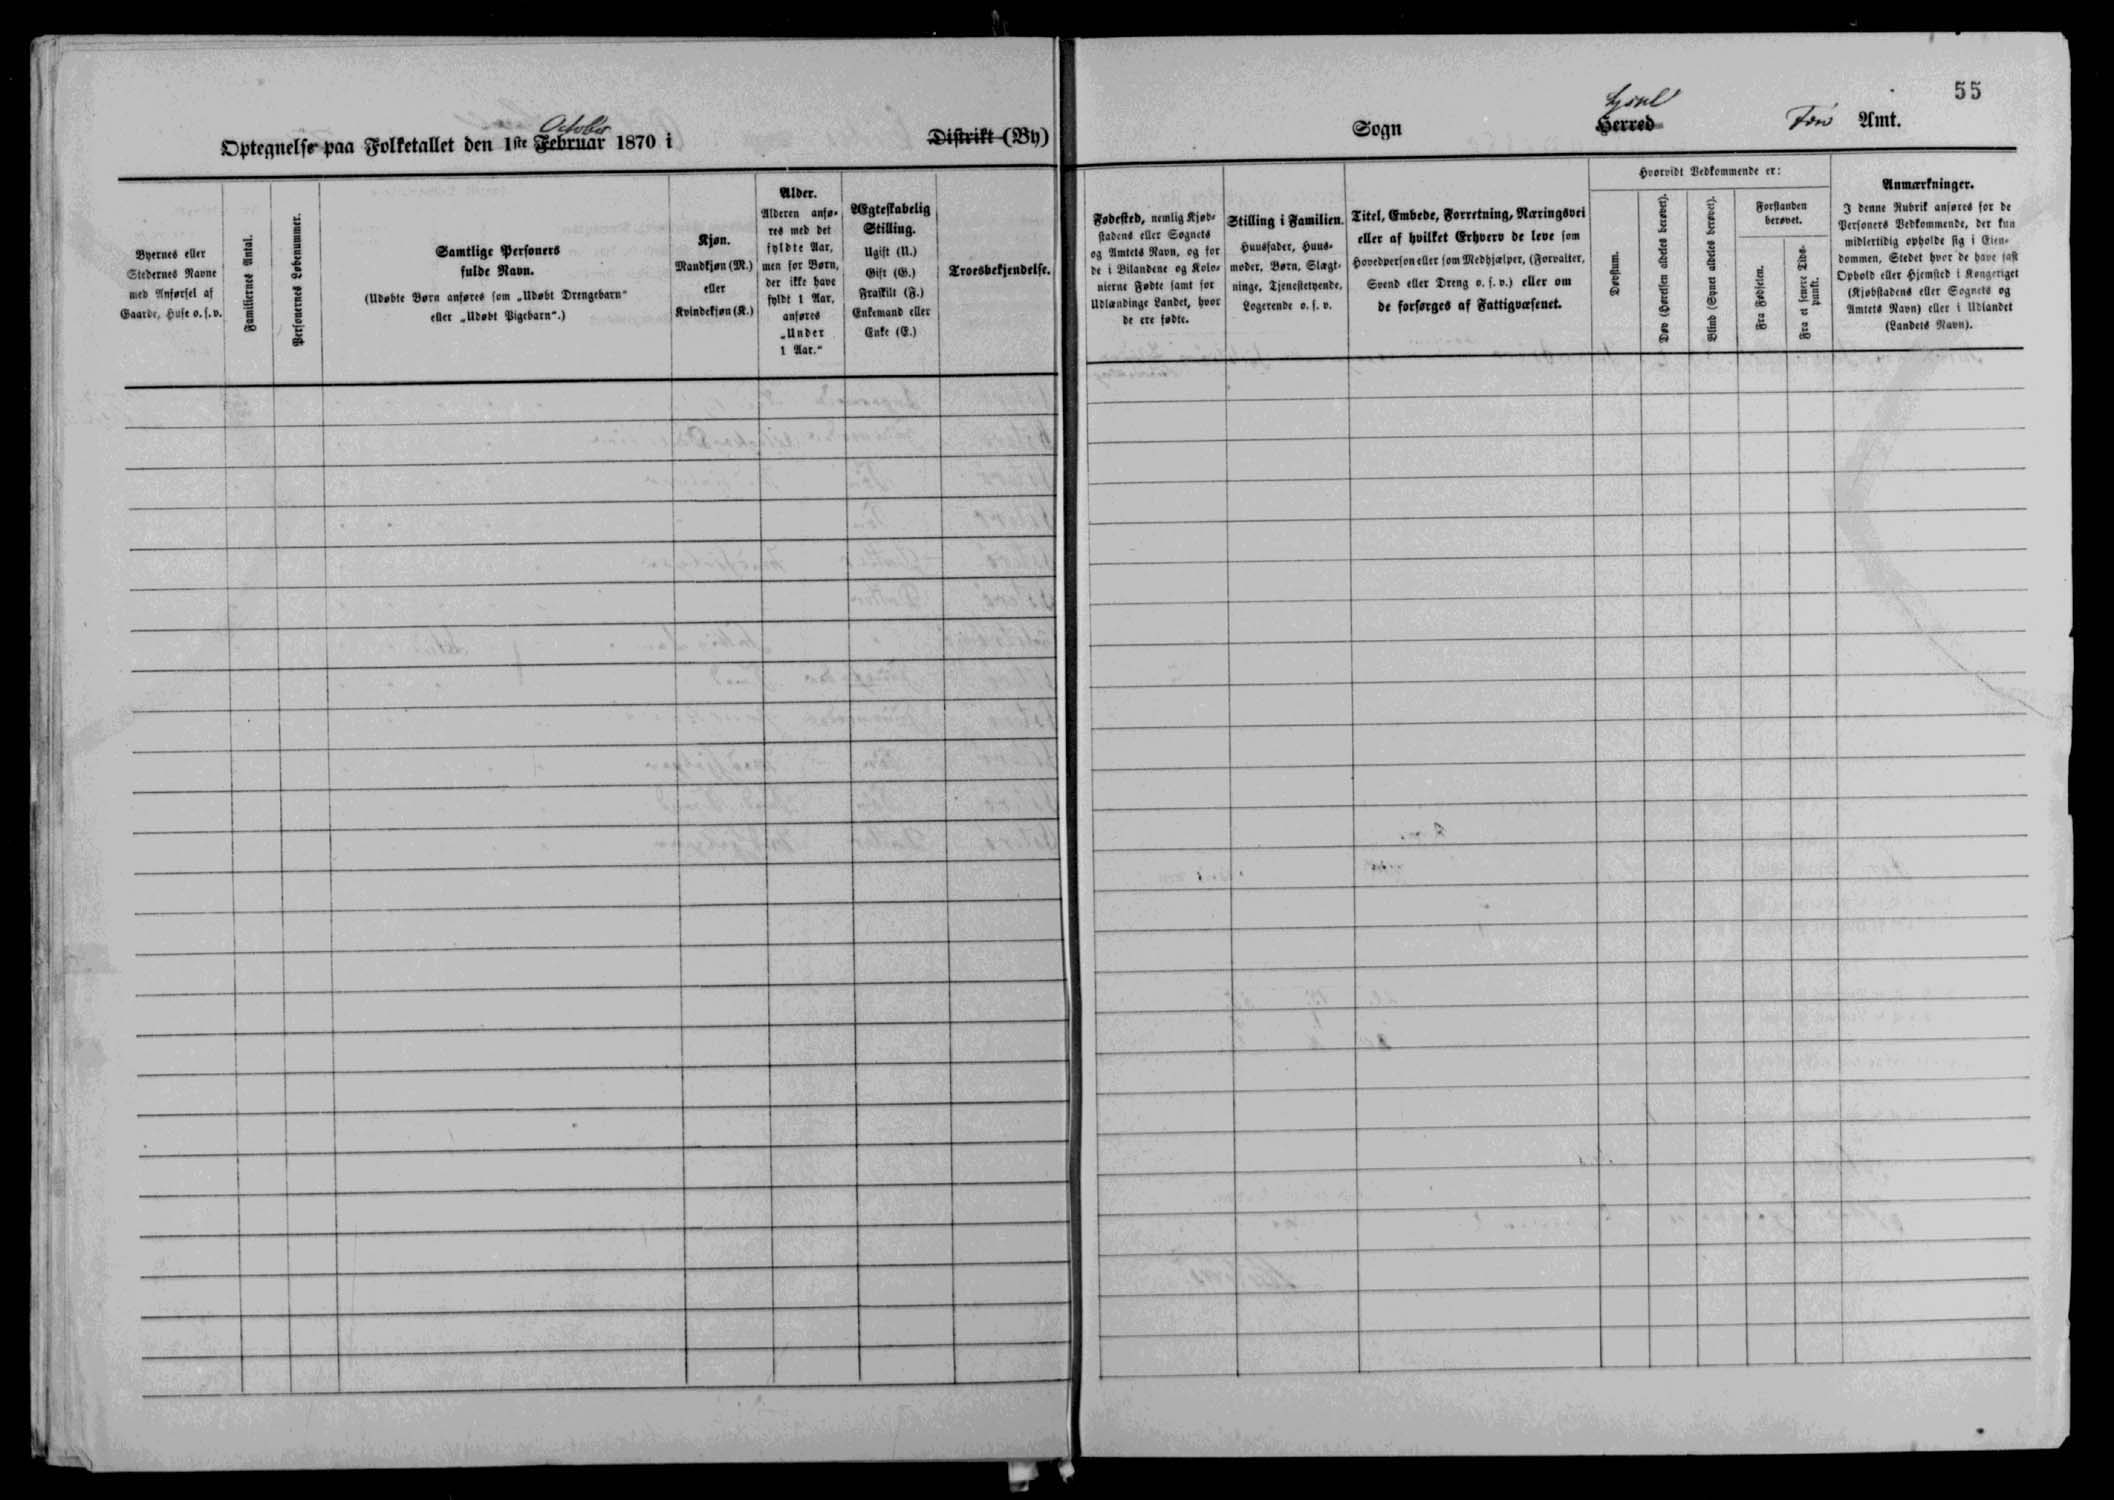 55
Optegnelse paa Folketallet den 1ste Februar October 1870 i Distrikt (By)
Sogn Herred Syssel Færø Amt.
Byernes eller
Stedernes Navne
med Anførsel af
Gaarde, Huse o. s. v.
Familiernes Antal.
Personernes Løbenummer.
Samtlige Personers
fulde Navn.
(Udøbte Børn anføres som „Udøbt Drengebarn“
eller „Udøbt Pigebarn“.)
Kjøn.
Mandkjøn (M.)
eller
Kvindekjøn (K.)
Alder.
Alderen anfø-
res med det
fyldte Aar,
men for Børn,
der ikke have
fyldt 1 Aar,
anføres
„Under
1 Aar.“
Ægteskabelig
Stilling.
Ugift (U.)
Gift (G.)
Fraskilt (F.)
Enkemand eller
Enke (E.)
Troesbekjendelse.
Fødested, nemlig Kjøb-
stadens eller Sognets
og Amtets Navn, og for
de i Bilandene og Kolo-
nierne Fødte samt for
Udlændinge Landet, hvor
de ere fødte.
Stilling i Familien.
Huusfader, Huus-
moder, Børn, Slægt-
ninge, Tjenestetyende,
Logerende o. s. v.
Titel, Embede, Forretning, Næringsvei
eller af hvilket Erhverv de leve som
Hovedperson eller som Medhjælper, (Forvalter,
Svend eller Dreng o. s. v.) eller om
de forsørges af Fattigvæsenet.
Hvorvidt Vedkommende er:
Døvstum.
Døv (Hørelsen aldeles berøvet).
Blind (Synet aldeles berøvet).
Forstanden
berøvet.
Fra Fødselen.
Fra et senere Tids-
punkt.
Anmærkninger.
I denne Rubrik anføres for de
Personers Vedkommende, der kun
midlertidig opholde sig i Eien-
dommen, Stedet hvor de have fast
Ophold eller Hjemsted i Kongeriget
(Kjøbstadens eller Sognets og
Amtets Navn) eller i Udlandet
(Landets Navn).